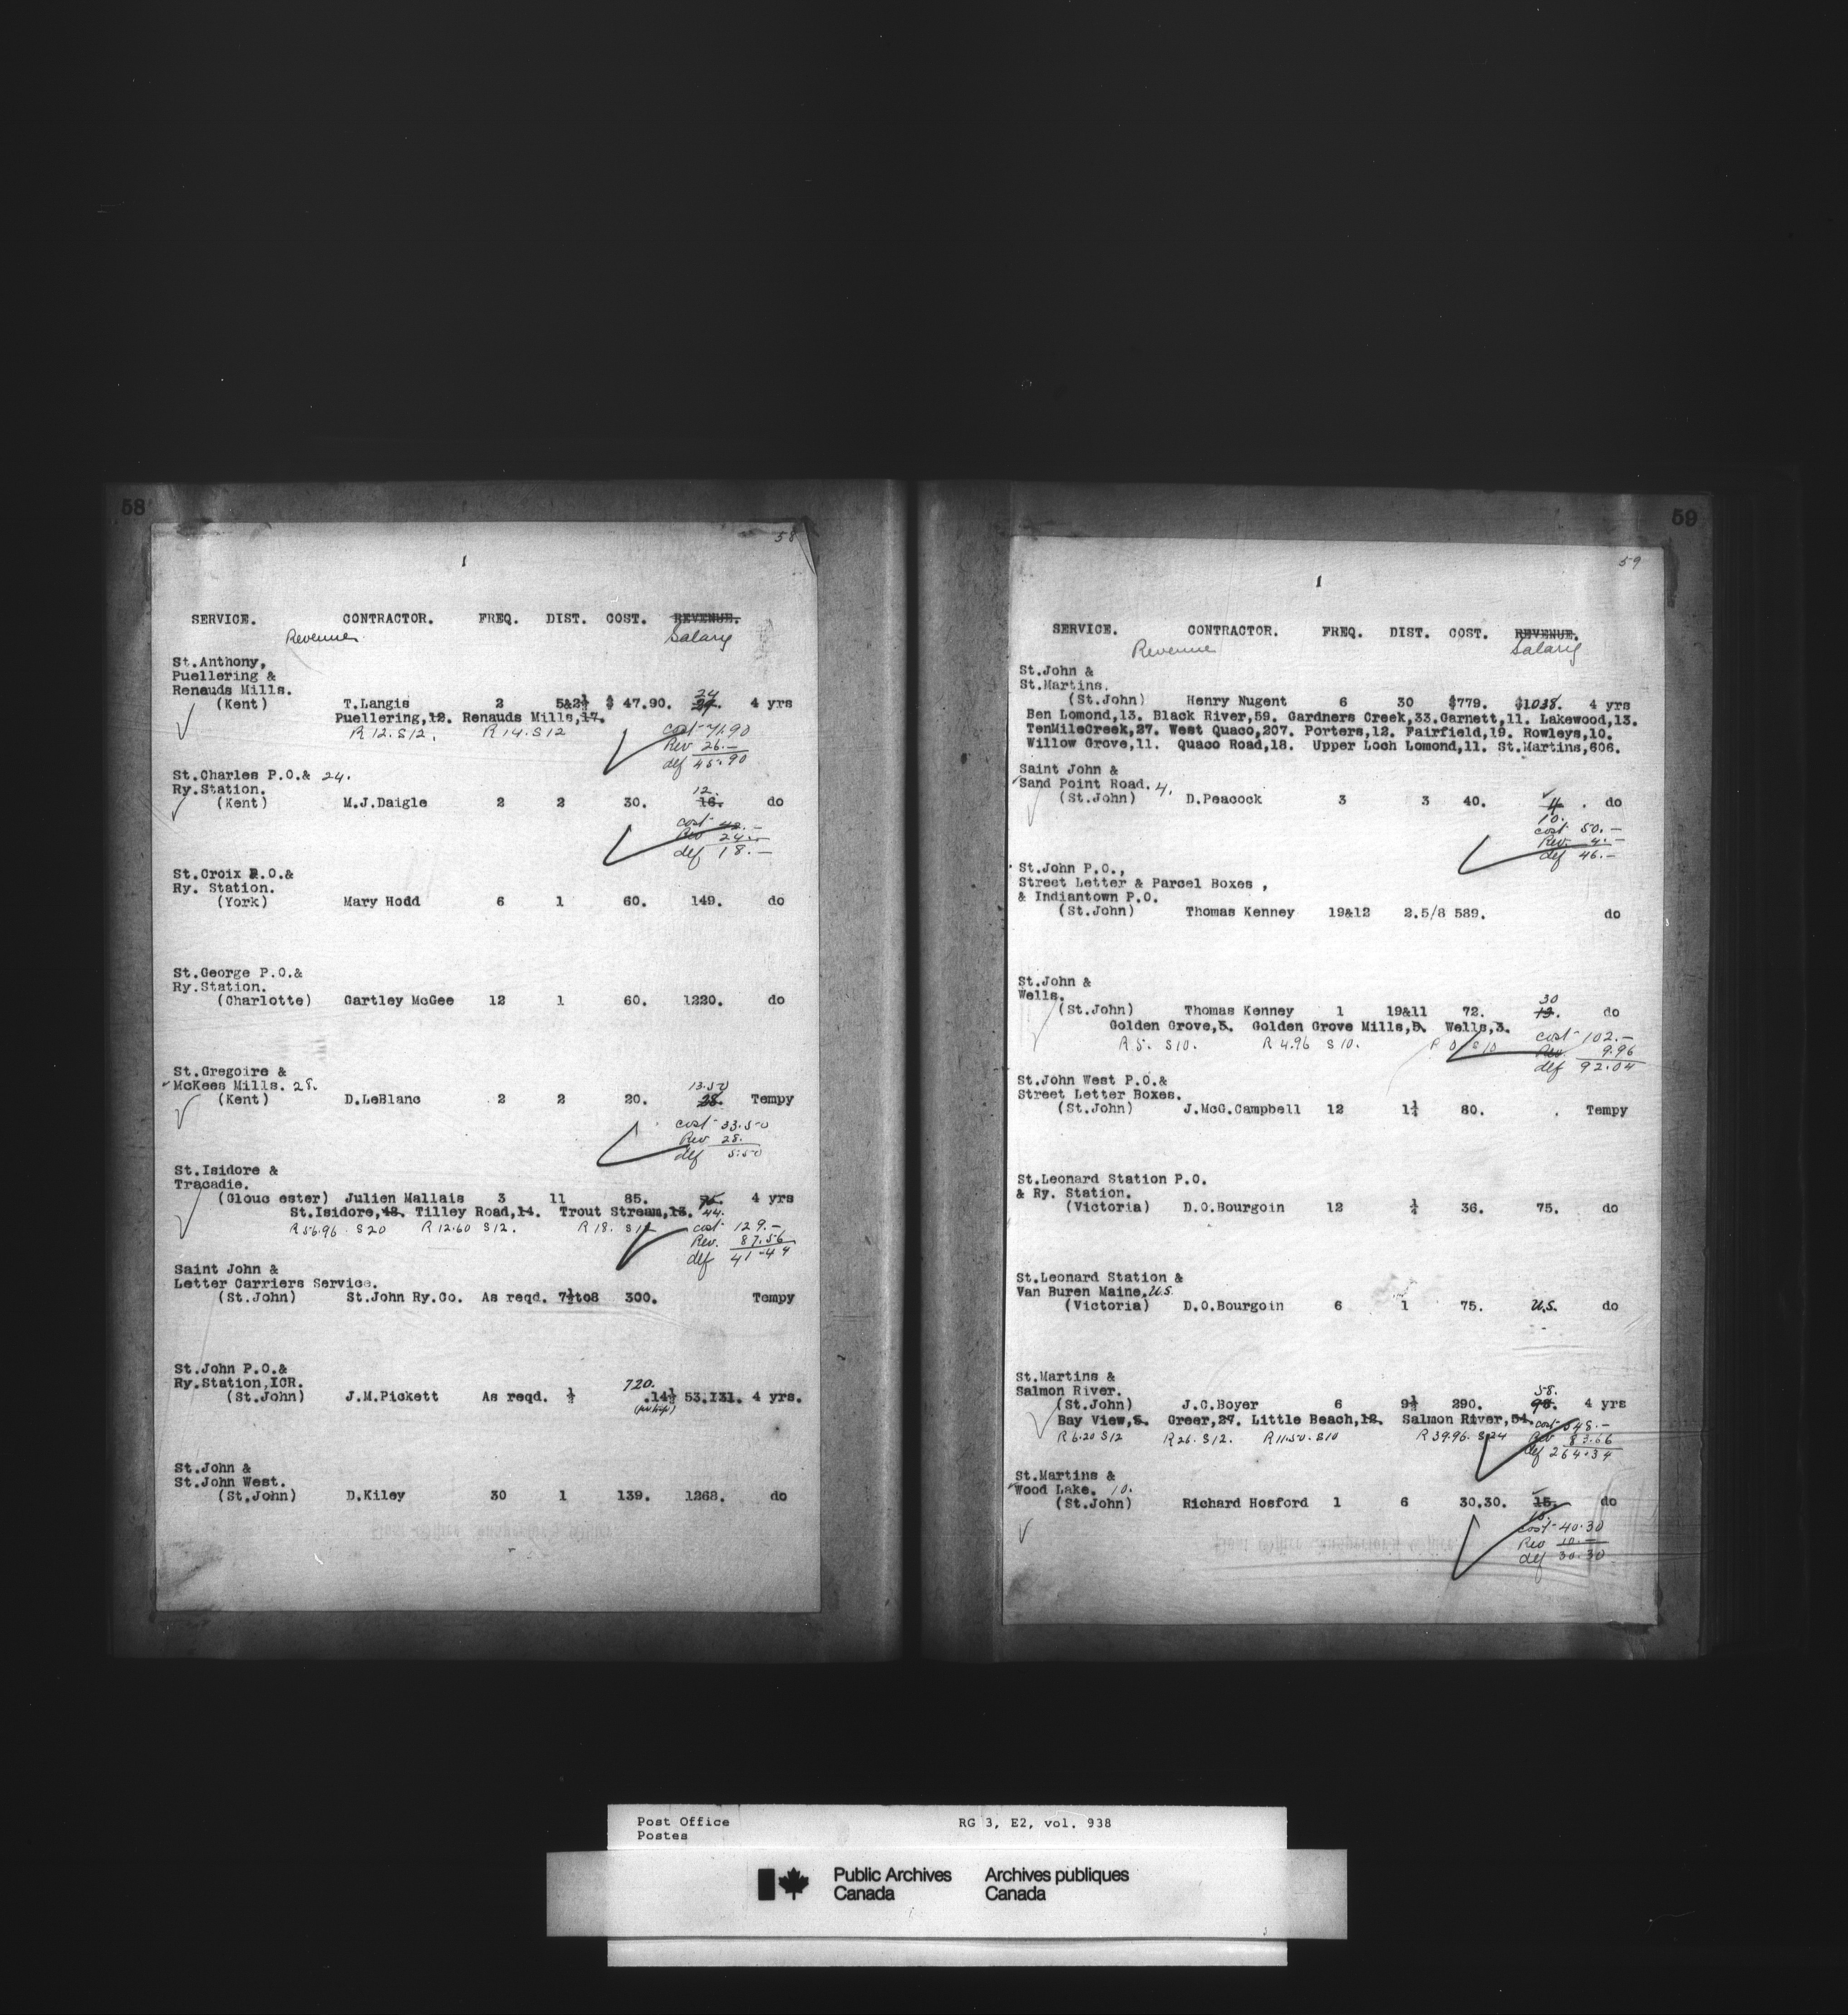 58
58
1
SERVICE. CONTRACTOR. FREQ. DIST. COST. REVENUE.
Revenue Salary
St.Anthony,
Puellering &
Renauds Mills. 24
(Kent) T.Langis 2 5&2½ $ 47.90. 4 yrs
Puellering,12. Renauds Mills,17.
R 12. S 12. R 14. S 12 cost 71.90
Rev 26.—
def 45.90
St.Charles P.O.& 24.
Ry.Station. 12.
(Kent) M.J.Daigle 2 2 30. 16. do
cost 42.—
Rev 24.—
def 18.—
St.Croix P.O.&
Ry. Station.
(York) Mary Hodd 6 1 60. 149. do
St.George P.O.&
Ry.Station.
(Charlotte) Gartley McGee 12 1 60. 1220. do
St.Gregoire &
McKees Mills. 28. 13.50
(Kent) D.LeBlanc 2 2 20. 28. Tempy
cost 33.50
Rev. 28.
def 5.50
St.Isidore &
Tracadie.
(Glouc ester) Julien Mallais 3 11 85. 75. 4 yrs
St.Isidore,48. Tilley Road,14. Trout Stream,13. 44.
R 56.96 S 20 R 12.60 S 12. R 18. S 12 cost 129.—
Rev. 87.56
def 41.44
Saint John &
Letter Carriers Service.
(St.John) St.John Ry.Co. As reqd. 7½to8 300. Tempy
St.John P.O.&
Ry.Station,ICR. 720.
(St.John) J.M.Pickett As reqd. ½ .14½ 53.131. 4 yrs.
(per trip)
St.John &
St.John West.
(St.John) D.Kiley 30 1 139. 1268. do
59
59
1
SERVICE. CONTRACTOR. FREQ. DIST. COST. REVENUE.
Revenue Salary
St.John &
St.Martins.
(St.John) Henry Nugent 6 30 $779. $1038. 4 yrs
Ben Lomond,13. Black River,59. Gardners Creek,33.Garnett,11. Lakewood,13.
TenMileCreek,27. West Quaco,207. Porters,12. Fairfield,19. Rowleys,10.
Willow Grove,11. Quaco Road,18. Upper Loch Lomond,11. St.Martins,606.
Saint John &
Sand Point Road. 4.
(St.John) D.Peacock 3 3 40. 4 . do
10.
cost 50.—
Rev. 4.—
def 46.—
St.John P.O.,
Street Letter & Parcel Boxes ,
& Indiantown P.O.
(St.John) Thomas Kenney 19&12 2.5/8 589. do
St.John &
Wells. 30
(St.John) Thomas Kenney 1 19&11 72. 13. do
Golden Grove,5. Golden Grove Mills,5. Wells,3.
R 5. S 10. R 4.96 S 10. R 0 S 10 cost 102.—
Rev. 9.96
def 92.04
St.John West P.O.&
Street Letter Boxes.
(St.John) J.McG.Campbell 12 1¼ 80. . Tempy
St.Leonard Station P.O.
& Ry. Station.
(Victoria) D.O.Bourgoin 12 ¼ 36. 75. do
St.Leonard Station &
Van Buren Maine. U.S.
(Victoria) D.O.Bourgoin 6 1 75. U.S. do
St.Martins &
Salmon River. 58.
(St.John) J.C.Boyer 6 9½ 290. 98. 4 yrs
Bay View,5. Greer,27. Little Beach,12. Salmon River,54. cost 348.—
R 6.20 S 12 R 26. S 12. R 11.50. S 10 R 39.96. S 24 Rev 83.66
def 264.34
St.Martins &
Wood Lake. 10.
(St.John) Richard Hosford 1 6 30.30. 15. do
10.
cost 40.30
Rev 10.—
def 30.30
Post Office RG 3, E2, vol. 938
Postes
Public Archives Archives publiques
Canada Canada